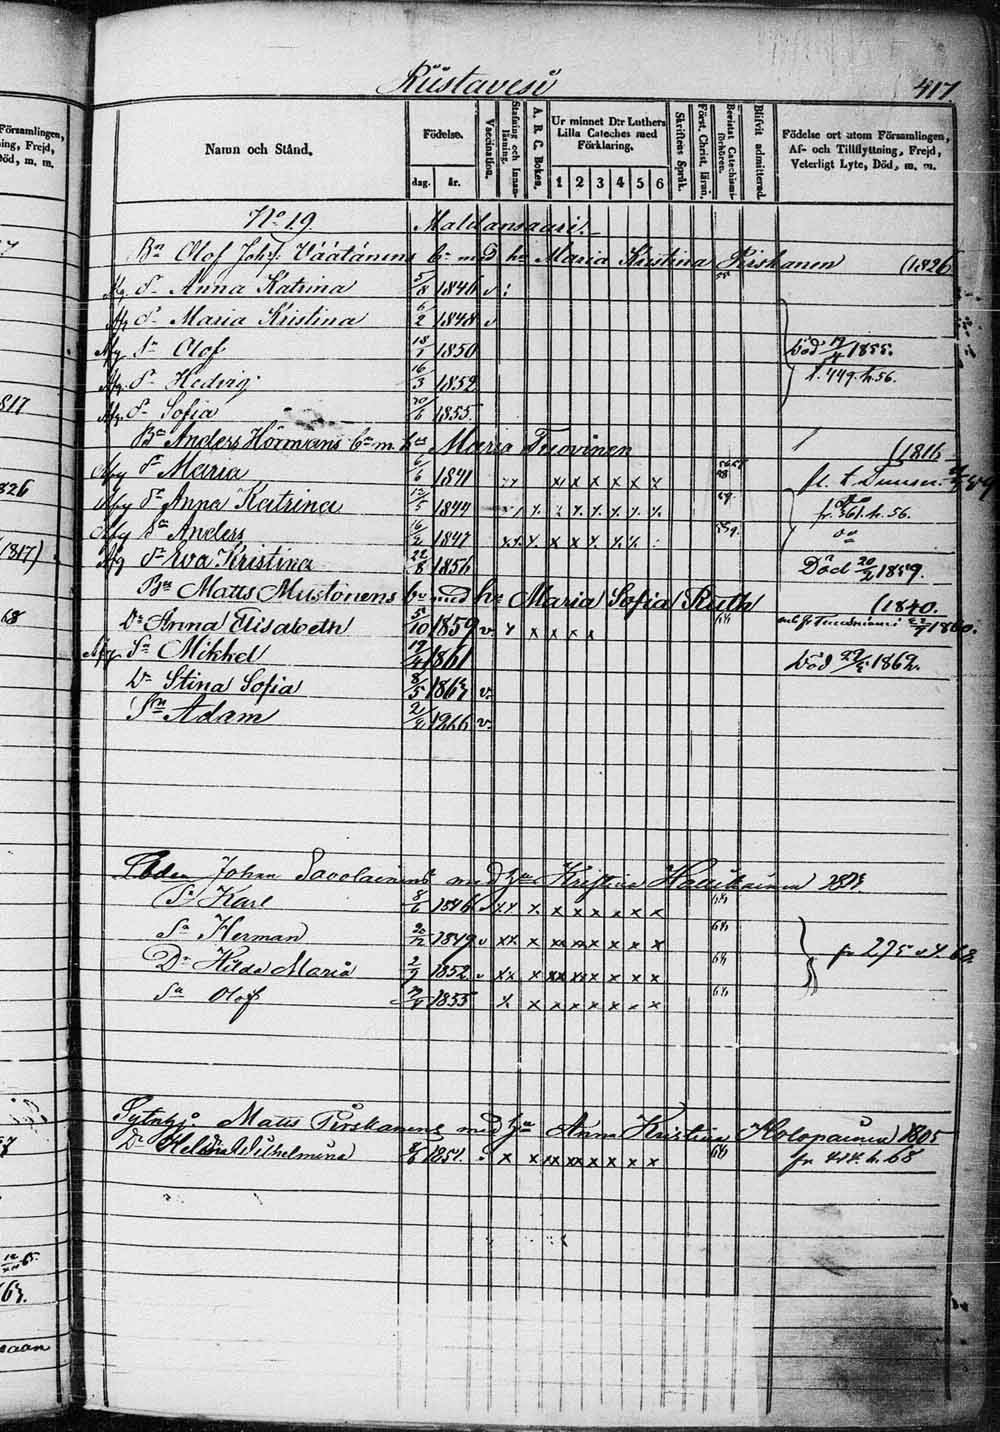 Riistavesi
417.
Namn och Stånd.
Födelse.
dag.
år.
Vaccination.
Stafning och Innanläsning.
A. B. C. Boken.
Ur minnet D:r Luthers
Lilla Cateches med
Förklaring.
1 2 3 4 5 6
Skriftens Språk.
Först. Christ. läran.
Bevistat Catechismiförhören.
Blifvit admitterad.
Födelse ort utom Församlingen,
Af- och Tillflyttning, Frejd,
Veterligt Lyte, Död, m. m.
No 19. Maldansaari
Bn Olof Johs: Väätänens bn med hu Maria Kristina Pirskanen (1826
Afg. Dr Anna Katrina 5/8 1846 v
Afg Dr Maria Kristina 6/2 1848 v
Afg Sn Olof 18/1 1850 Död 1855.
Afg. Dr Hedvig 16/3 1852 f. 449. h. 56.
Afg. Dr Sofia 20/6 1855.
Bn Anders Hörmans bn m. hu Maria Tuovinen (1816
Afg Dr Maria 6/6 1841 x x x x x x
Afg Dr Anna Katrina 12/5 1844 fr. 361. h. 56.
Afg Sn Anders 16/2 1847
Afg Dr Eva Kristina 22/8 1856 Död 20/2 1859.
Bn Matts Mustonens bn med hu Maria Sofia Ruth (1840.
Dr Anna Elisabeth 5/10 1859 v. x x x x x 68 1860.
Afg Sn Mikkel 19/4 1861 Död 1862.
Dr Stina Sofia 8/5 1863 v.
Sn Adam 1866 v.
Johan Savolainens med hu Kristina
Sn Karl 8/6 1846 x x x x x x x 68
Sn Herman 1849 v xx x xx xx x x x x 68
Dr Hilda Maria 2/9 1852 v xx x xx xx x x x x 68
Sn Olof 1855 x x x x x x x x 68
fr 275
Matts Pirskanens med hu Anna Kristina Holopainen 1805
Dr Helena Wilhelmina 1851. x x xx xx x x x x 68 fr h. 68
Församlingen,
Frejd,
Död, m. m.
817
826
(1817)
68